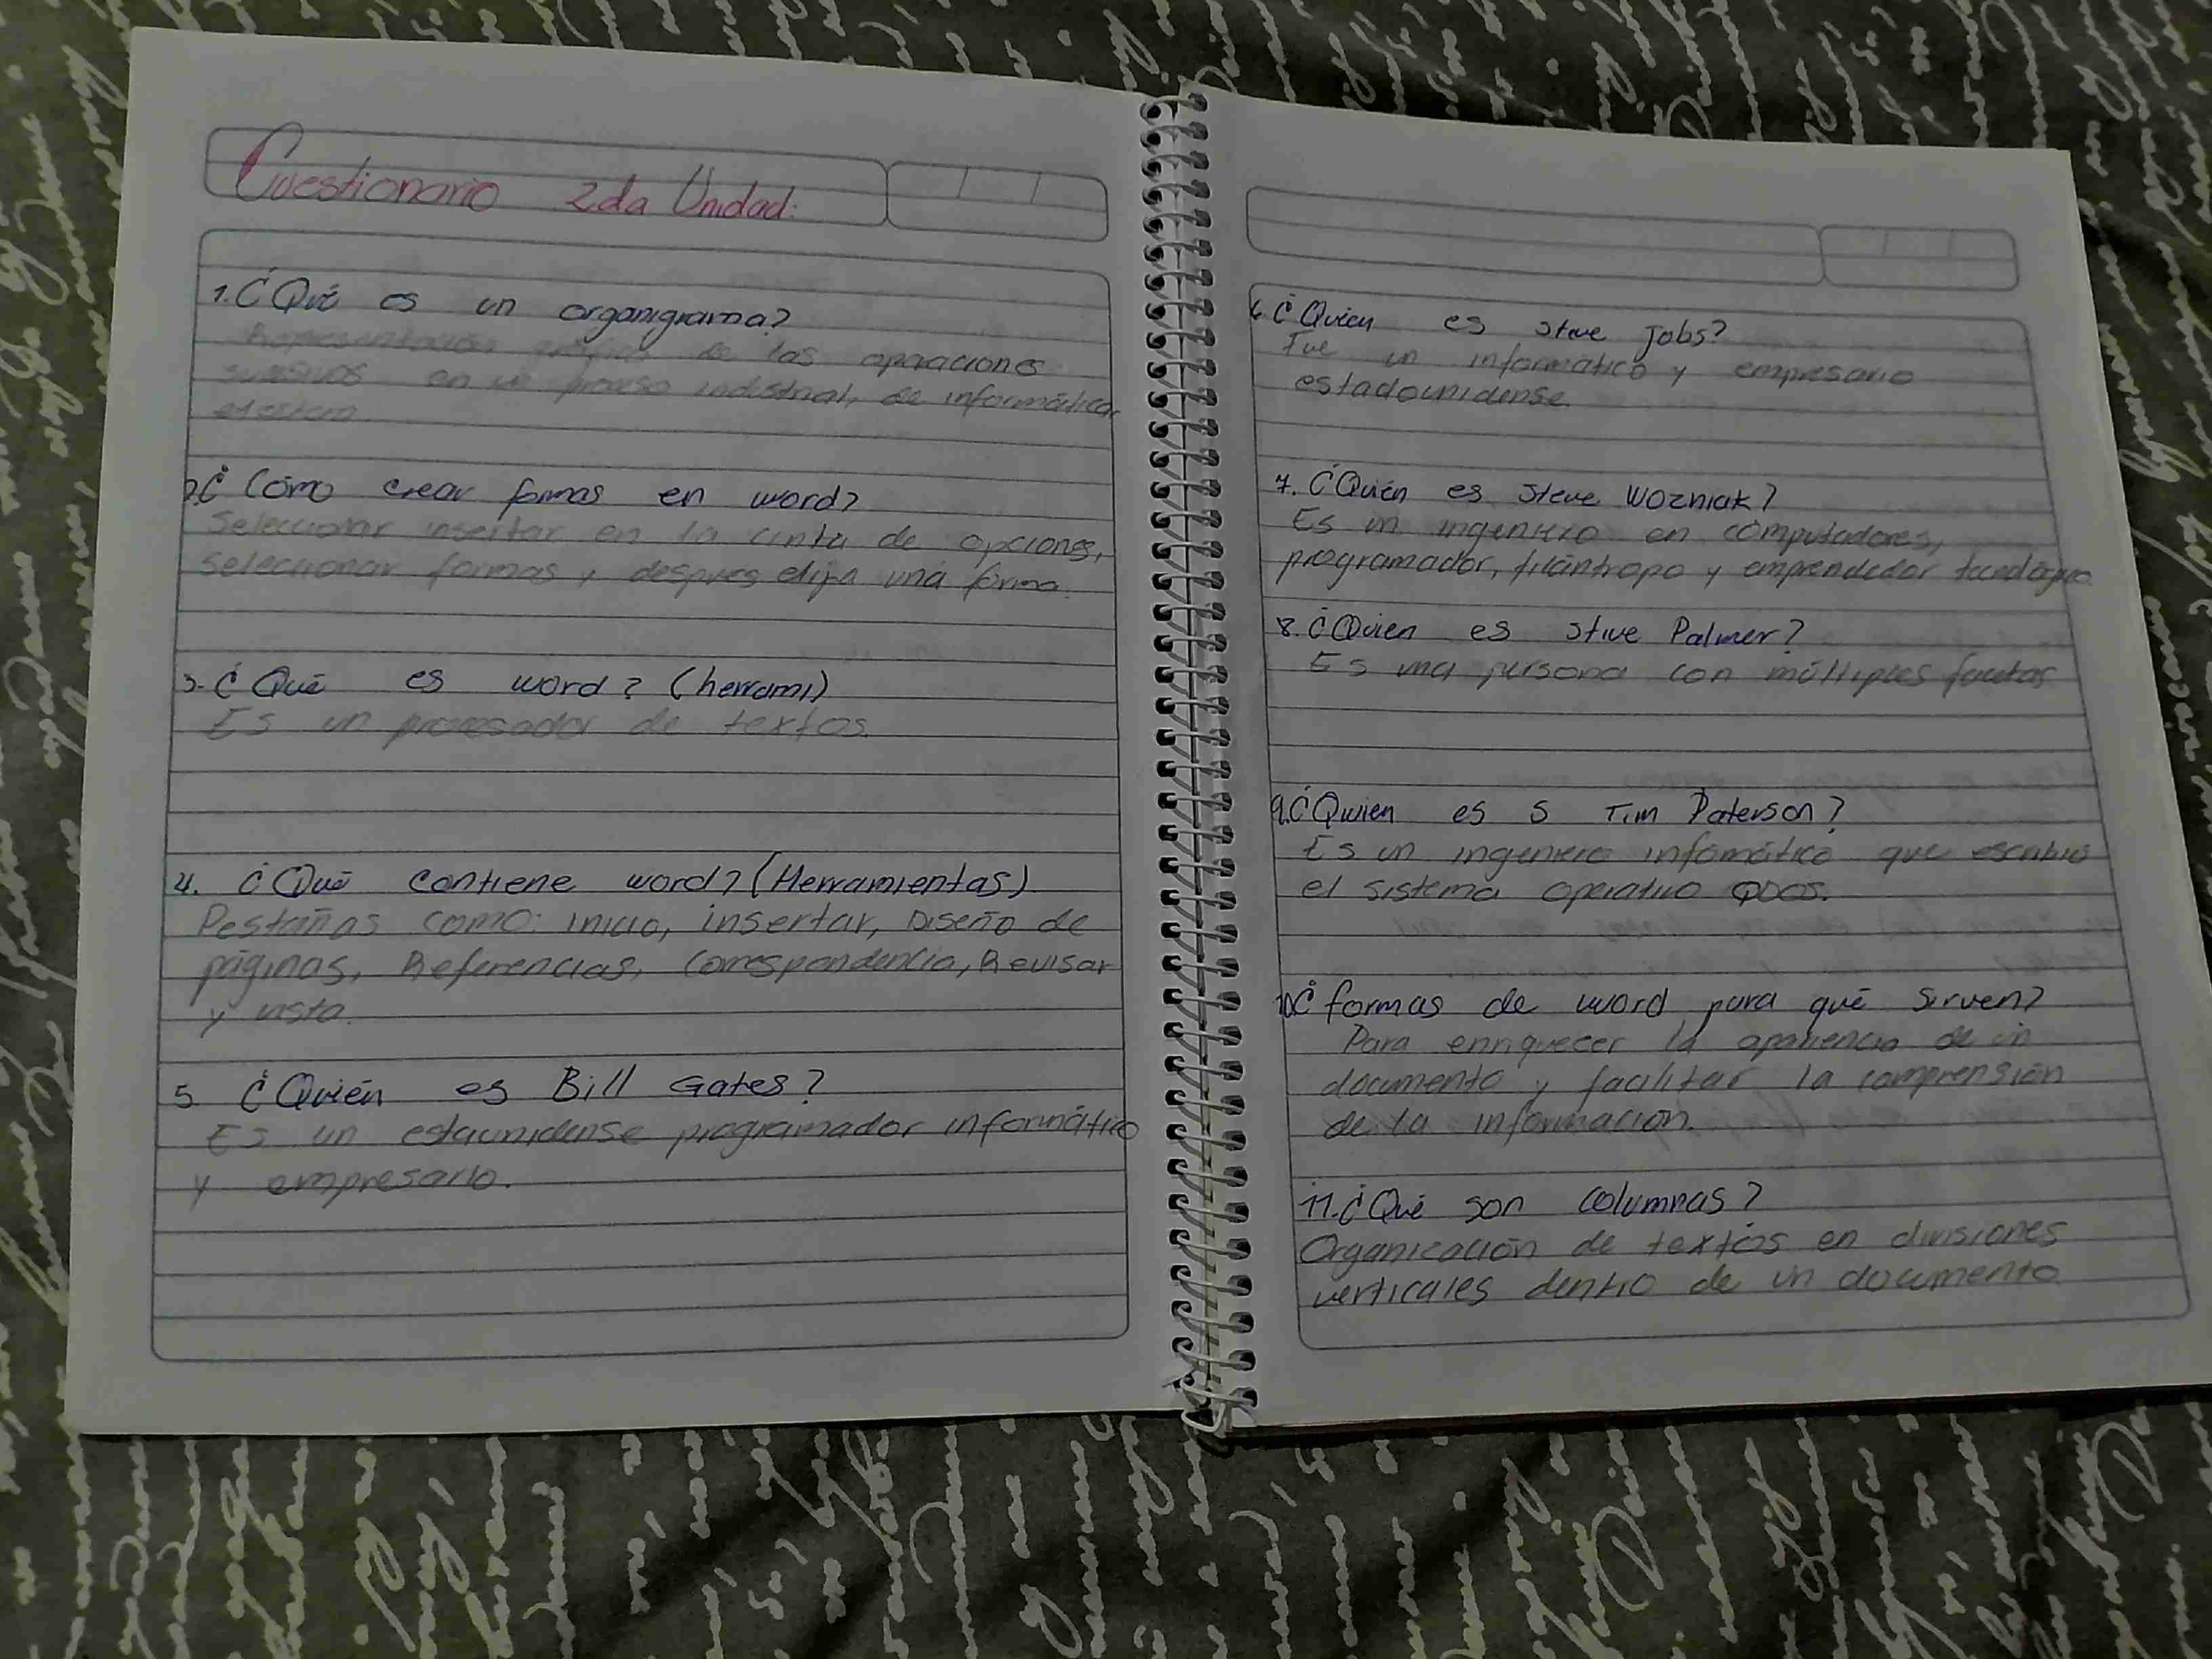 Cuestionario 2da Unidad.
1. ¿Qué es un organigrama?
Representación gráfica de las operaciones
sucesivos en un proceso industrial, de informática,
etcétera.
2¿ Cómo crear formas en word?
Seleccionar insertar en la cinta de opciones,
seleccionar formas y despues elija una forma.
3. ¿ Qué es word? (herrami)
Es un procesador de textos.
4. ¿Qué contiene word? (Herramientas)
Pestañas como: inicio, insertar, Diseño de
páginas, Referencias, Correspondencia, Revisar
y vista.
5. ¿Quién es Bill Gates?
Es un estaunidense programador informático
y empresario.
6. ¿Quien es Steve Jobs?
Fue un informático y empresario
estadounidense.
7. ¿Quién es Steve Wozniak?
Es un ingeniero en computadores,
programador, filántropo y emprendedor tecnológico
8. ¿Quien es Stive Palmer?
Es una persona con múltiples facetas
9. ¿Quien es S Tim Paterson?
Es un ingeniero infomático que escribió
el sistema operativo QDOS.
10¿ formas de word para qué sirven?
Para enriquecer la apariencia de un
documento y facilitar la comprensión
de la información.
11. ¿Qué son columnas?
Organización de textos en divisiones
verticales dentro de un documento